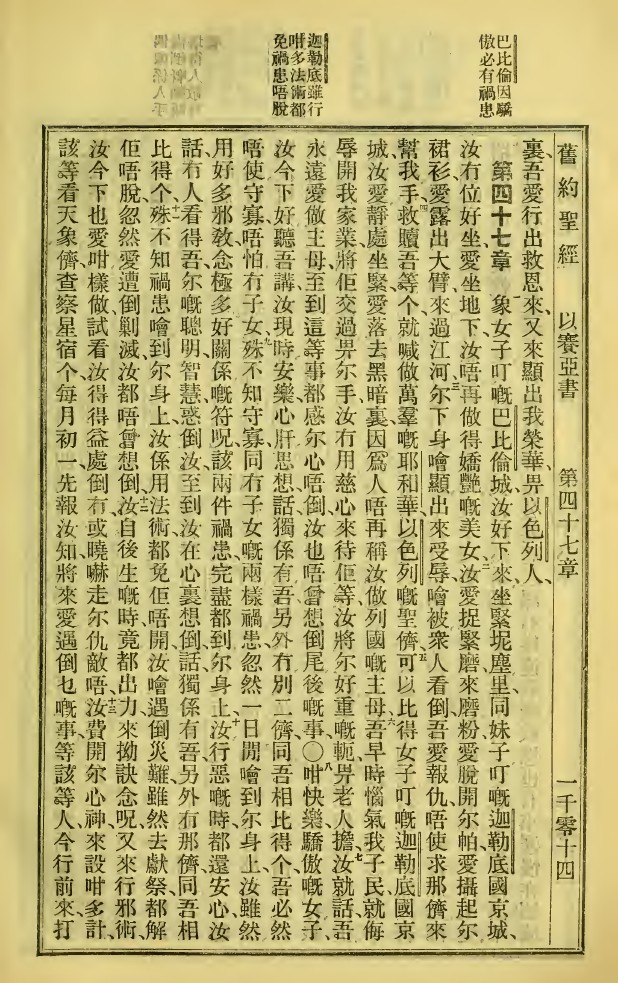 巴比倫因驕
傲必有禍患
迦勒底雖行
咁多法術都
免禍患唔脫
舊約聖經 以賽亞書 第四十七章 一千零十四
裏、吾愛行出救恩來、又來顯出我榮華、畀以色列人、
第四十七章 象女子叮嘅巴比倫城、汝好下來、坐緊坭塵里、同妹子叮嘅迦勒底國京城、
汝冇位好坐、愛坐地下、汝唔再做得嬌艷嘅美女、二汝愛捉緊磨來磨粉、愛脫開尔帕、愛攝起尔
裙衫、愛露出大臂來過江河、三尔下身噲顯出來受辱、噲被衆人看倒、吾愛報仇、唔使求那儕來
幫我手、四救贖吾等个、就喊做萬羣嘅耶和華、以色列嘅聖儕、五可以比得女子叮嘅迦勒底國京
城、汝愛靜處坐緊、愛落去黑暗裏、因爲人唔再稱汝做列國嘅主母、六吾早時惱氣我子民、就侮
辱開我家業、將佢交過畀尔手、汝冇用慈心來待佢等、汝將尔好重嘅軛、畀老人擔、七汝就話、吾
永遠愛做主母、至到這等事都感尔心唔倒、汝也唔曾想倒尾後嘅事、〇八咁快樂驕傲嘅女子、
汝今下好聽吾講、汝現時安樂、心肝思想話、獨係有吾、另外冇別二儕同吾相比得个、吾必然
唔使守寡、唔怕冇子女、九殊不知守寡同冇子女嘅兩樣禍患、忽然一日間噲到尔身上、汝雖然
用好多邪敎、念極多好關係嘅符呪、該兩件禍患完盡都到尔身上、十汝行惡嘅時都還安心、汝
話冇人看得吾、尔嘅聰明智慧惑倒汝、至到汝在心裏想倒話、獨係有吾、另外冇那儕同吾相
比得个、十一殊不知禍患噲到尔身上、汝係用法術都免佢唔開、汝噲遇倒災難、雖然去獻祭都解
佢唔脫、忽然愛遭倒剿滅、汝都唔曾想倒、十二汝自後生嘅時竟都出力來拗訣念呪、又來行邪術、
汝今下也愛咁樣做試看、汝得得益處倒冇、或曉嚇走尔仇敵唔、十三汝費開尔心神來設咁多計、
該等看天象儕、查察星宿个、每月初一先報汝知將來愛遇倒乜嘅事等、該等人今行前來、打